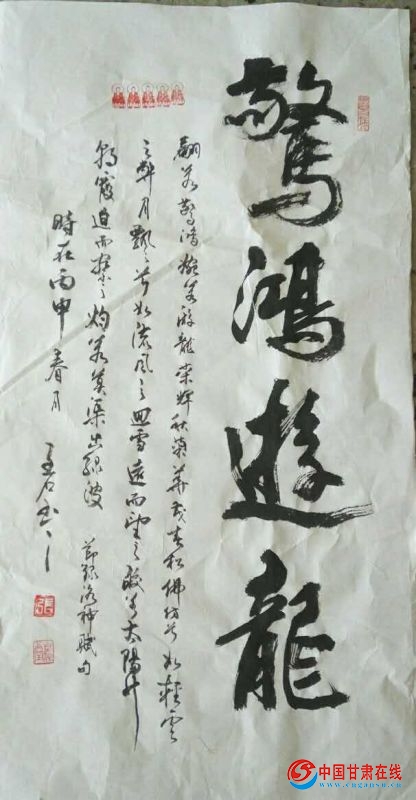 驚鴻遊龍
翩若驚鴻婉若游龍榮輝秋菊華茂春松佛彷兮如輕雲
之蔽月飄々兮如流風之迴雪遠而望之皎若太陽升
朝霞迫而察之灼若芙渠出綠波 節錄洛神賦句
時在丙申春月
中国甘肃在线
www.cngansu.cn